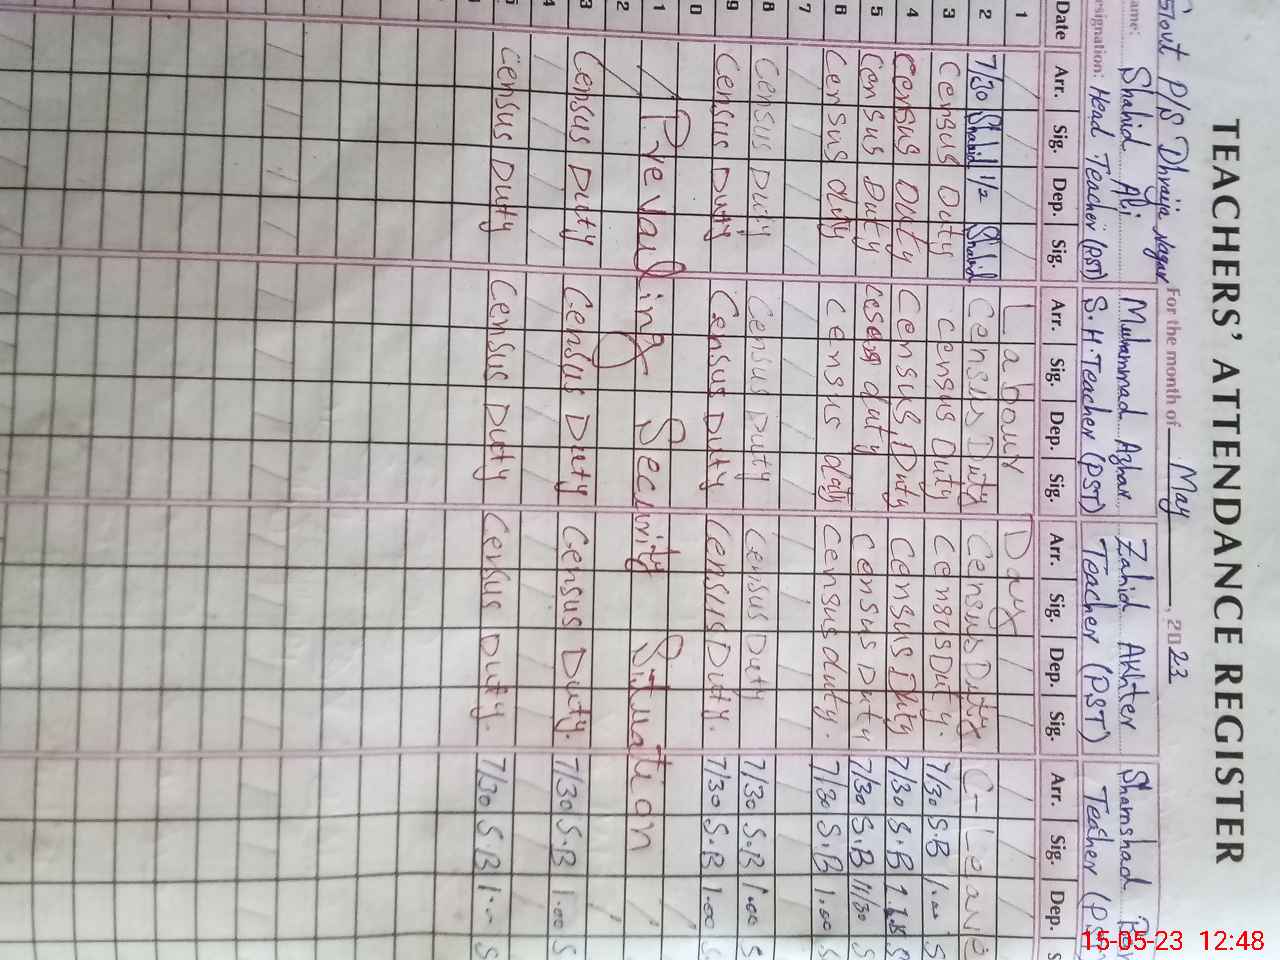 TEACHERS' ATTENDANCE REGISTER
Gout P/S Dhraija Nagar For the month of May, 2023
ame: Shahid Ali Muhammad Azhar Zahid Akhter Shamshad B
esignation: Head Teacher (PST) S.H.Teacher (PST) Teacher (PST) Teacher (PS
Date Arr. Sig. Dep. Sig. Arr. Sig. Dep. Sig. Arr. Sig. Dep. Sig. Arr. Sig. Dep. S
1 Labour Day
2 7/30 Shahid 1/2 Shahid Census Duty Census Duty C-Leave
3 Census Duty Census Duty Census Duty. 7/30 S.B 1.00 S
4 Census Duty Census Duty Census Duty 7/30 S.B S
5 Census Duty duty Census Duty 7/30 S.B 11/30 S
6 Census duty Census duty Census duty. 7/30 S.B 1.00 S
7
8 Census Duty Census Duty Census Duty 7/30 S.B 1.00 S
9 Census Duty Census Duty Census Duty. 7/30 S.B 1.00 S
0
1 Prevailing Security Situation
2
3 Census Duty Census Duty Census Duty. 7/30 S.B 1.00 S
4
5 Census Duty Census Duty Census Duty. 7/30 S.B 1.00 S
15-05-23 12:48